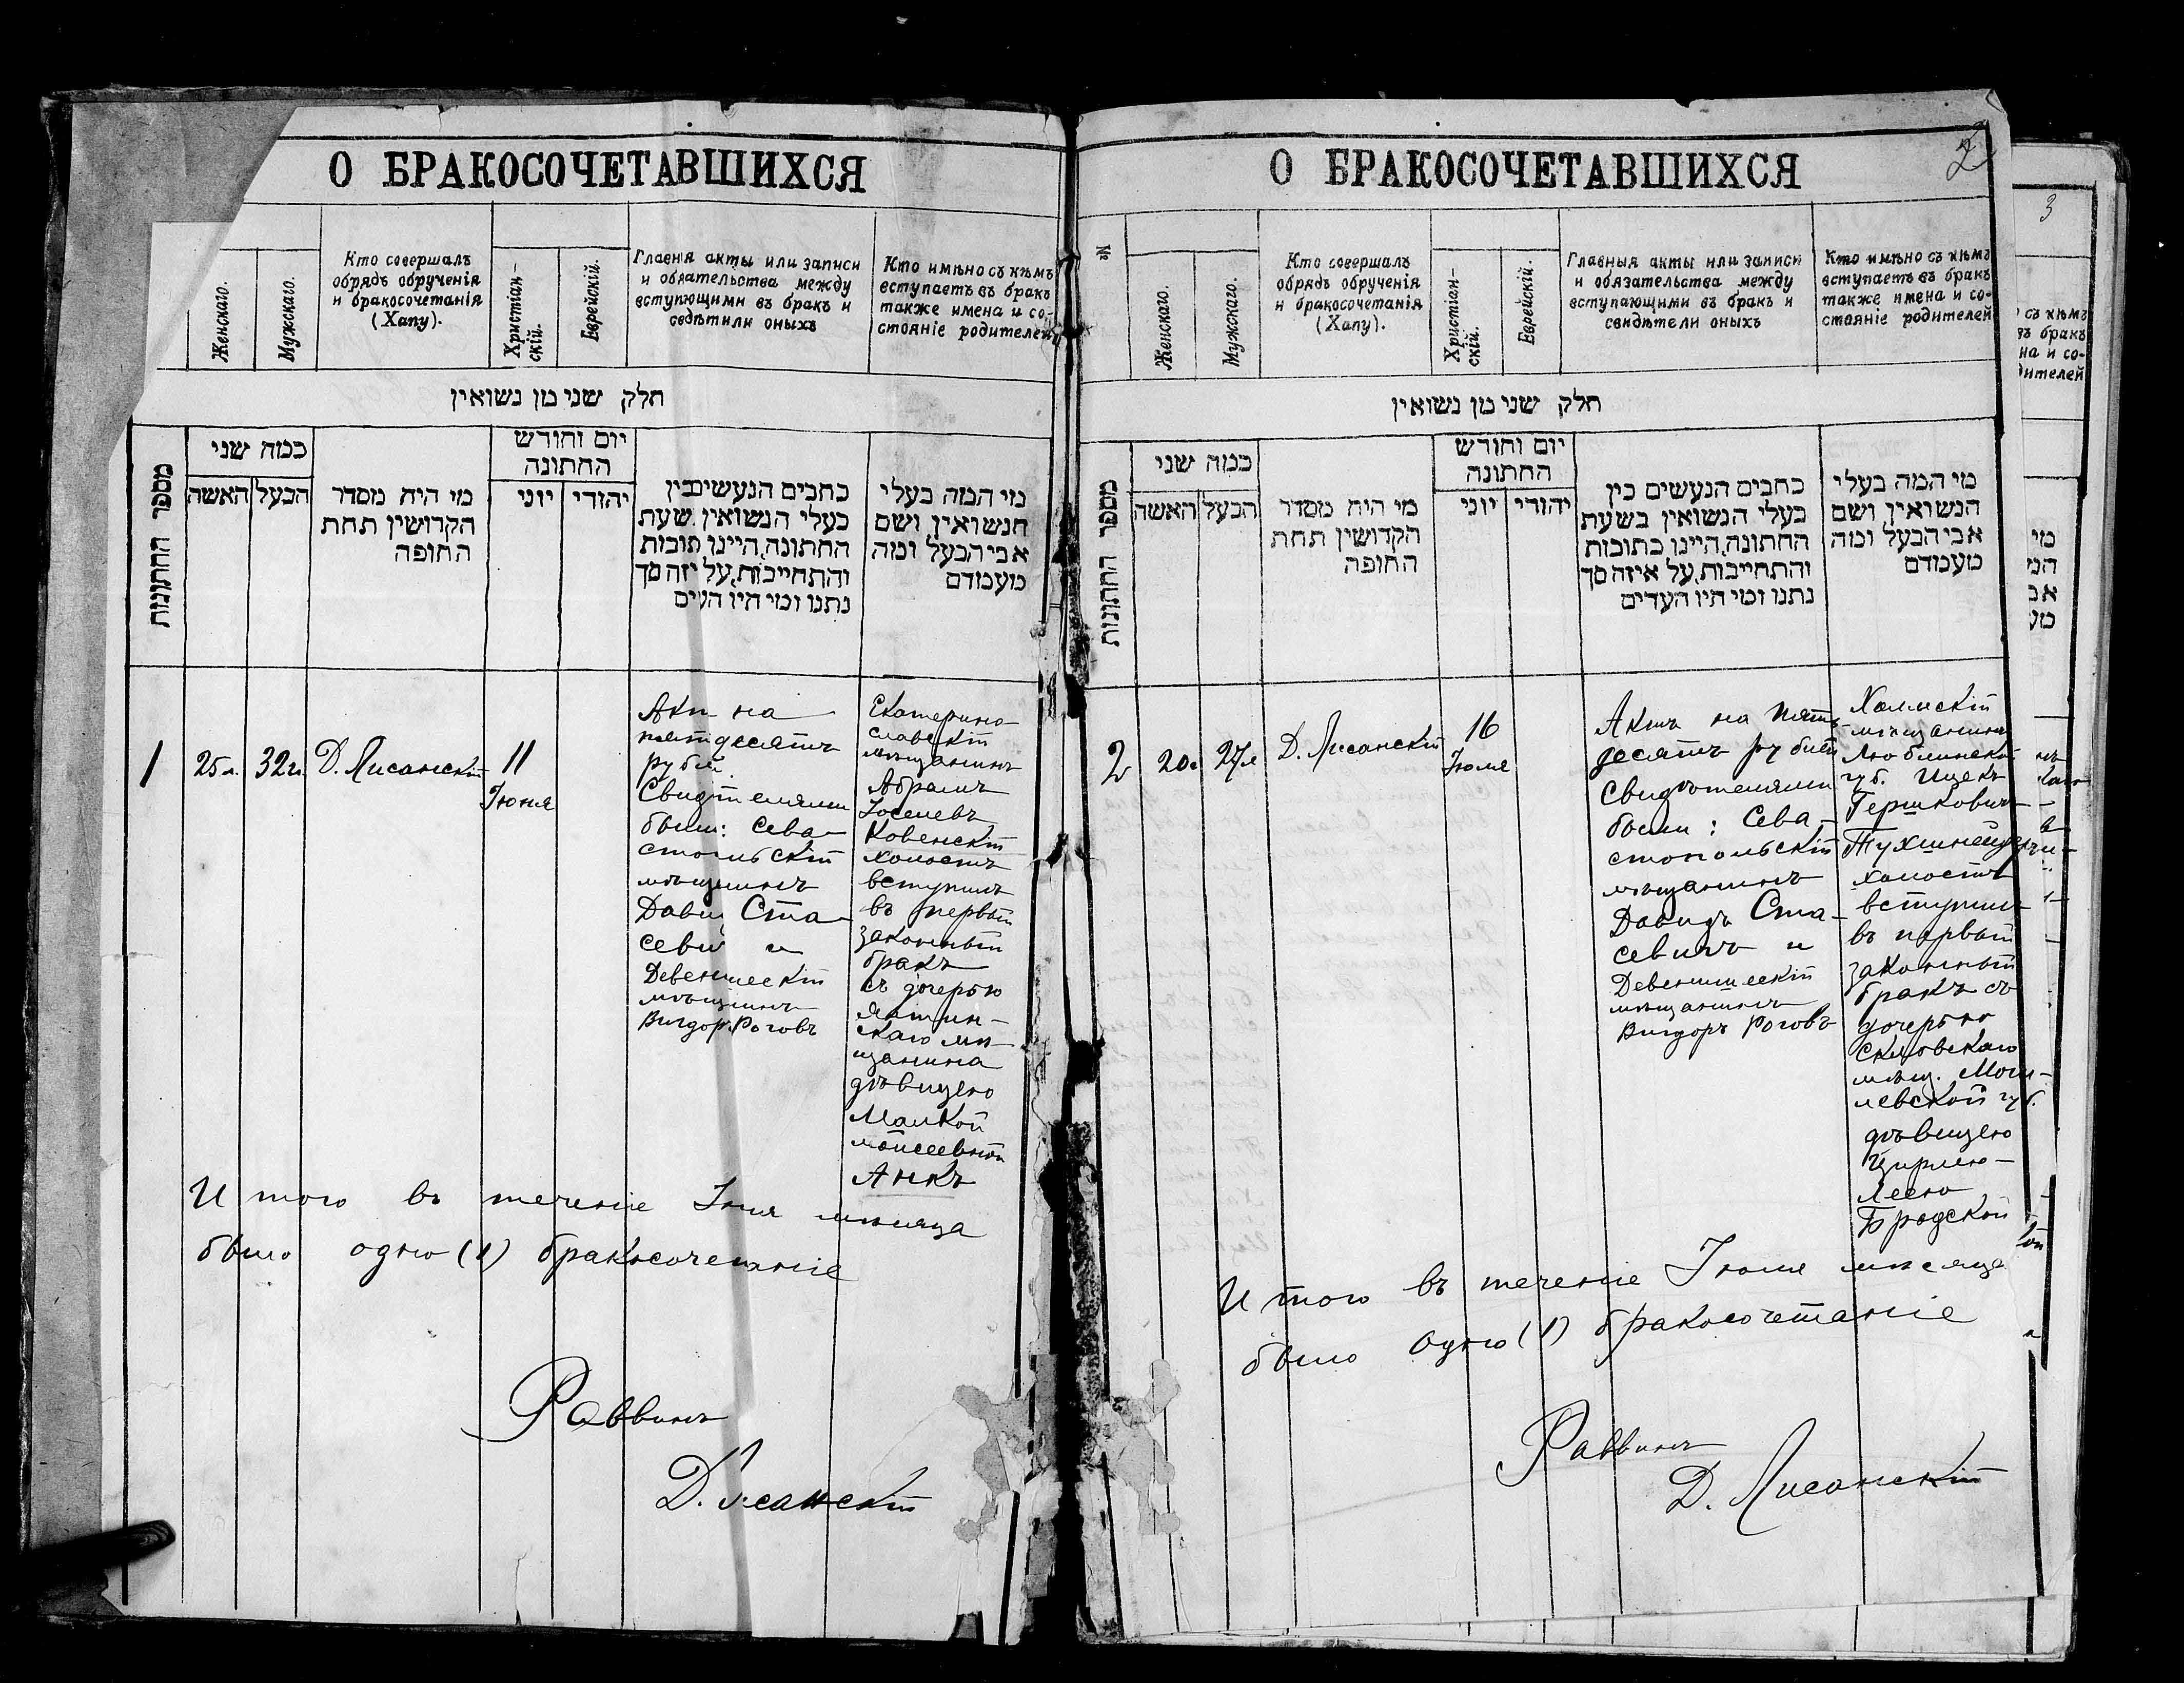 О БРАКОСОЧЕТАВШИХСЯ
Женскаго.
Мужскаго.
Кто совершалъ
обрядъ обрученія
и бракосочетанія
(Хапу).
Христіан-
скій.
Еврейскій.
Главныя акты или записи
и обязательства между
вступющими въ бракъ и
свдѣтили оныхъ
Кто имѣно съ кѣмъ
вступаетъ въ бракъ
также имена и со-
стояніе родителей
חלק שני מן נשואין
מספר החתונות
כמה שני
האשה
הבעל
מי היה מסדר
הקדושין תחת
החופה
יום וחודש
החתונה
יוני
יהודי
כתבים הנעשים בין
בעלי הנשואין שעת
החתונה, היינו תובות
והתחייבות, על יזה סך
נתנו ומי היו העים
מי המה בעלי
הנשואין ושם
אבי הבעל ומה
מעמדם
1
25 л.
32 г.
Д. Лисанскій
11
Іюня
Актъ на
пятидесятъ
рублей.
Свидѣтелями
были: Сева-
стопольскій
мѣщанинъ
Давид Ста-
севич и
Девенишескій
мѣщанинъ
Вигдоръ Роговъ
Екатерино-
славскій
мѣщанинъ
Абрамъ
Іоселевъ
Ковенскій
холостъ
вступилъ
въ первый
законный
бракъ
съ дочерью
Ялтин-
скаго мѣ-
щанина
дѣвицею
Малкой
Моисеевной
Анкъ
Итого въ теченіе Іюня мѣсяца
было одно (1) бракосочетаніе
Раввинъ
Д. Лисанскій
О БРАКОСОЧЕТАВШИХСЯ
2
№
Женскаго.
Мужскаго.
Кто совершалъ
обрядъ обрученія
и бракосочетанія
(Хапу).
Христіан-
скій.
Еврейскій.
Главныя акты или записи
и обязательства между
вступающими въ бракъ и
свидѣтели оныхъ
Кто имѣно съ кѣмъ
вступаетъ въ бракъ
также имена и со-
стояніе родителей
חלק שני מן נשואין
מספר החתונות
כמה שני
האשה
הבעל
מי היה מסדר
הקדושין תחת
החופה
יום וחודש
החתונה
יוני
יהודי
כתבים הנעשים בין
בעלי הנשואין בשעת
החתונה, היינו כתובות
והתחייבות, על איזה סך
נתנו ומי היו העדים
מי המה בעלי
הנשואין ושם
אבי הבעל ומה
מעמדם
2
20 г
27 л
Д. Лисанскій
16
Іюля
Актъ на пять-
десятъ рублей
Свидѣтелями
были: Сева-
стопольскій
мѣщанинъ
Давидъ Ста-
севичъ и
Девенишескій
мѣщанинъ
Вигдоръ Роговъ
Холмскій
мѣщанинъ
Люблинской
губ. Ицекъ
Гершковичъ
Тухшнейдеръ
холостъ
вступилъ
въ первый
законный
бракъ съ
дочерью
Скловскаго
мѣщ. Моги-
левской губ.
дѣвицею
Цирлею-
Леею
Бродской
Итого въ теченіе Іюля мѣсяца
было одно (1) бракосочетаніе
Раввинъ
Д. Лисанскій
3
съ кѣмъ
въ бракъ
на и со-
дителей